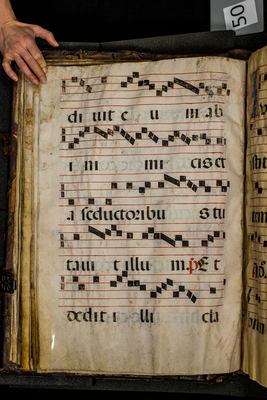 50
di uit e u m ab
i ni mi cis et
a seductoribu s tu
taui t illu m. Et
dedit i olli cla